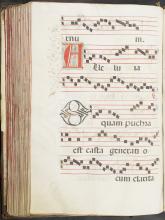 rnu m.
Alle lu ia
O quam pulchra
est casta generati o
cum clarita